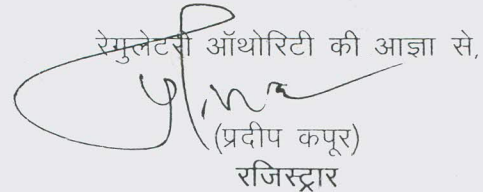 रेगुलेटरी ऑथोरिटी की आज्ञा से,
(प्रदीप कपूर)
रजिस्ट्रार